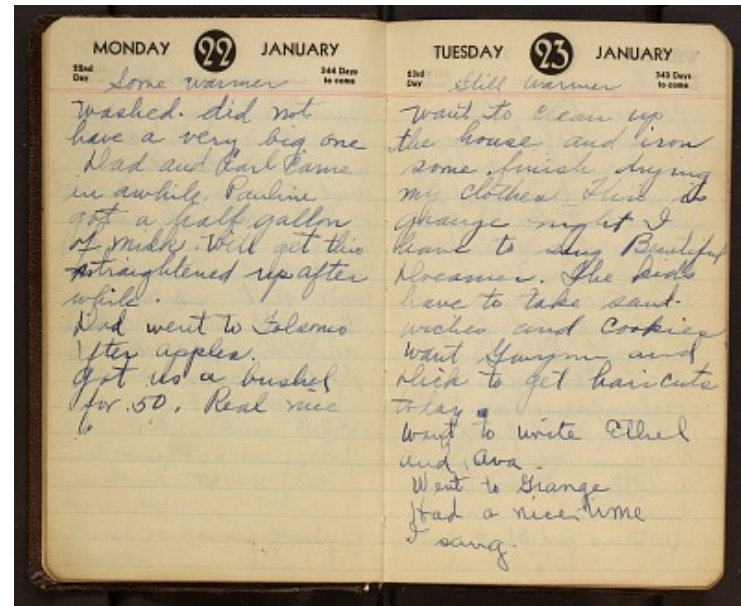 MONDAY 22 JANUARY
22nd Day
344 Days to come
Some warmer
Washed. did not
have a very big one
Dad and Earl came
in awhile Pauline
got a half gallon
of milk. Will get this
straightened up after
while.
Dad went to Folsoms
after apples.
got us a bushel
for .50. Real nice
TUESDAY 23 JANUARY
23rd Day
343 Days to come
Still warmer
want to clean up
the house and iron
some. finish drying
my clothes. This is
Grange night I
have to sing Beautiful
Dreamer. The kids
have to take sand-
wiches and cookies
want Gwynn and
Dick to get haircuts
today.
want to write Ethel
and Ava.
Went to Grange
Had a nice time
I sang.